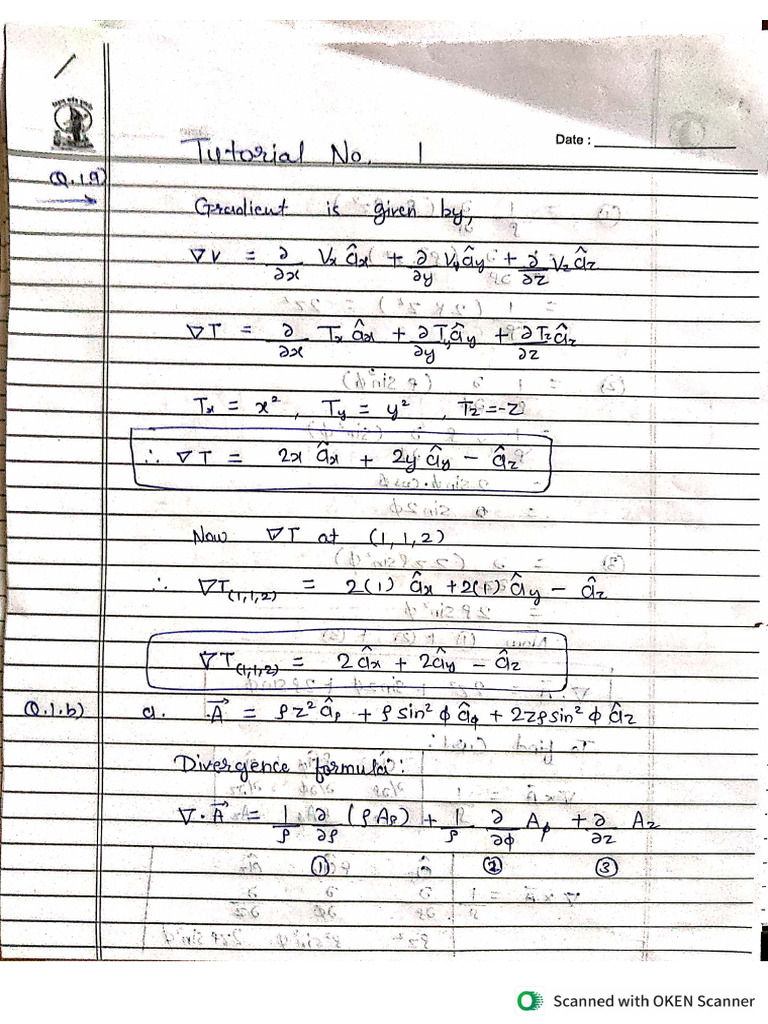 Date :
Tutorial No. 1
Q.1.a)
Gradient is given by,
∇V = ∂/∂x Vx âx + ∂/∂y Vy ây + ∂/∂z Vz âz
∇T = ∂/∂x Tx âx + ∂Ty/∂y ây + ∂Tz/∂z âz
Tx = x², Ty = y², Tz = -z
∴ ∇T = 2x âx + 2y ây − âz
Now ∇T at (1,1,2)
∴ ∇T(1,1,2) = 2(1) âx + 2(1) ây − âz
∇T(1,1,2) = 2âx + 2ây − âz
Q.1.b) a. A⃗ = ρz² âρ + ρ sin² ϕ âϕ + 2zρ sin² ϕ âz
Divergence formula:
∇·A⃗ = 1/ρ ∂/∂ρ (ρAρ) + 1/ρ ∂/∂ϕ Aϕ + ∂/∂z Az
① ② ③
Scanned with OKEN Scanner